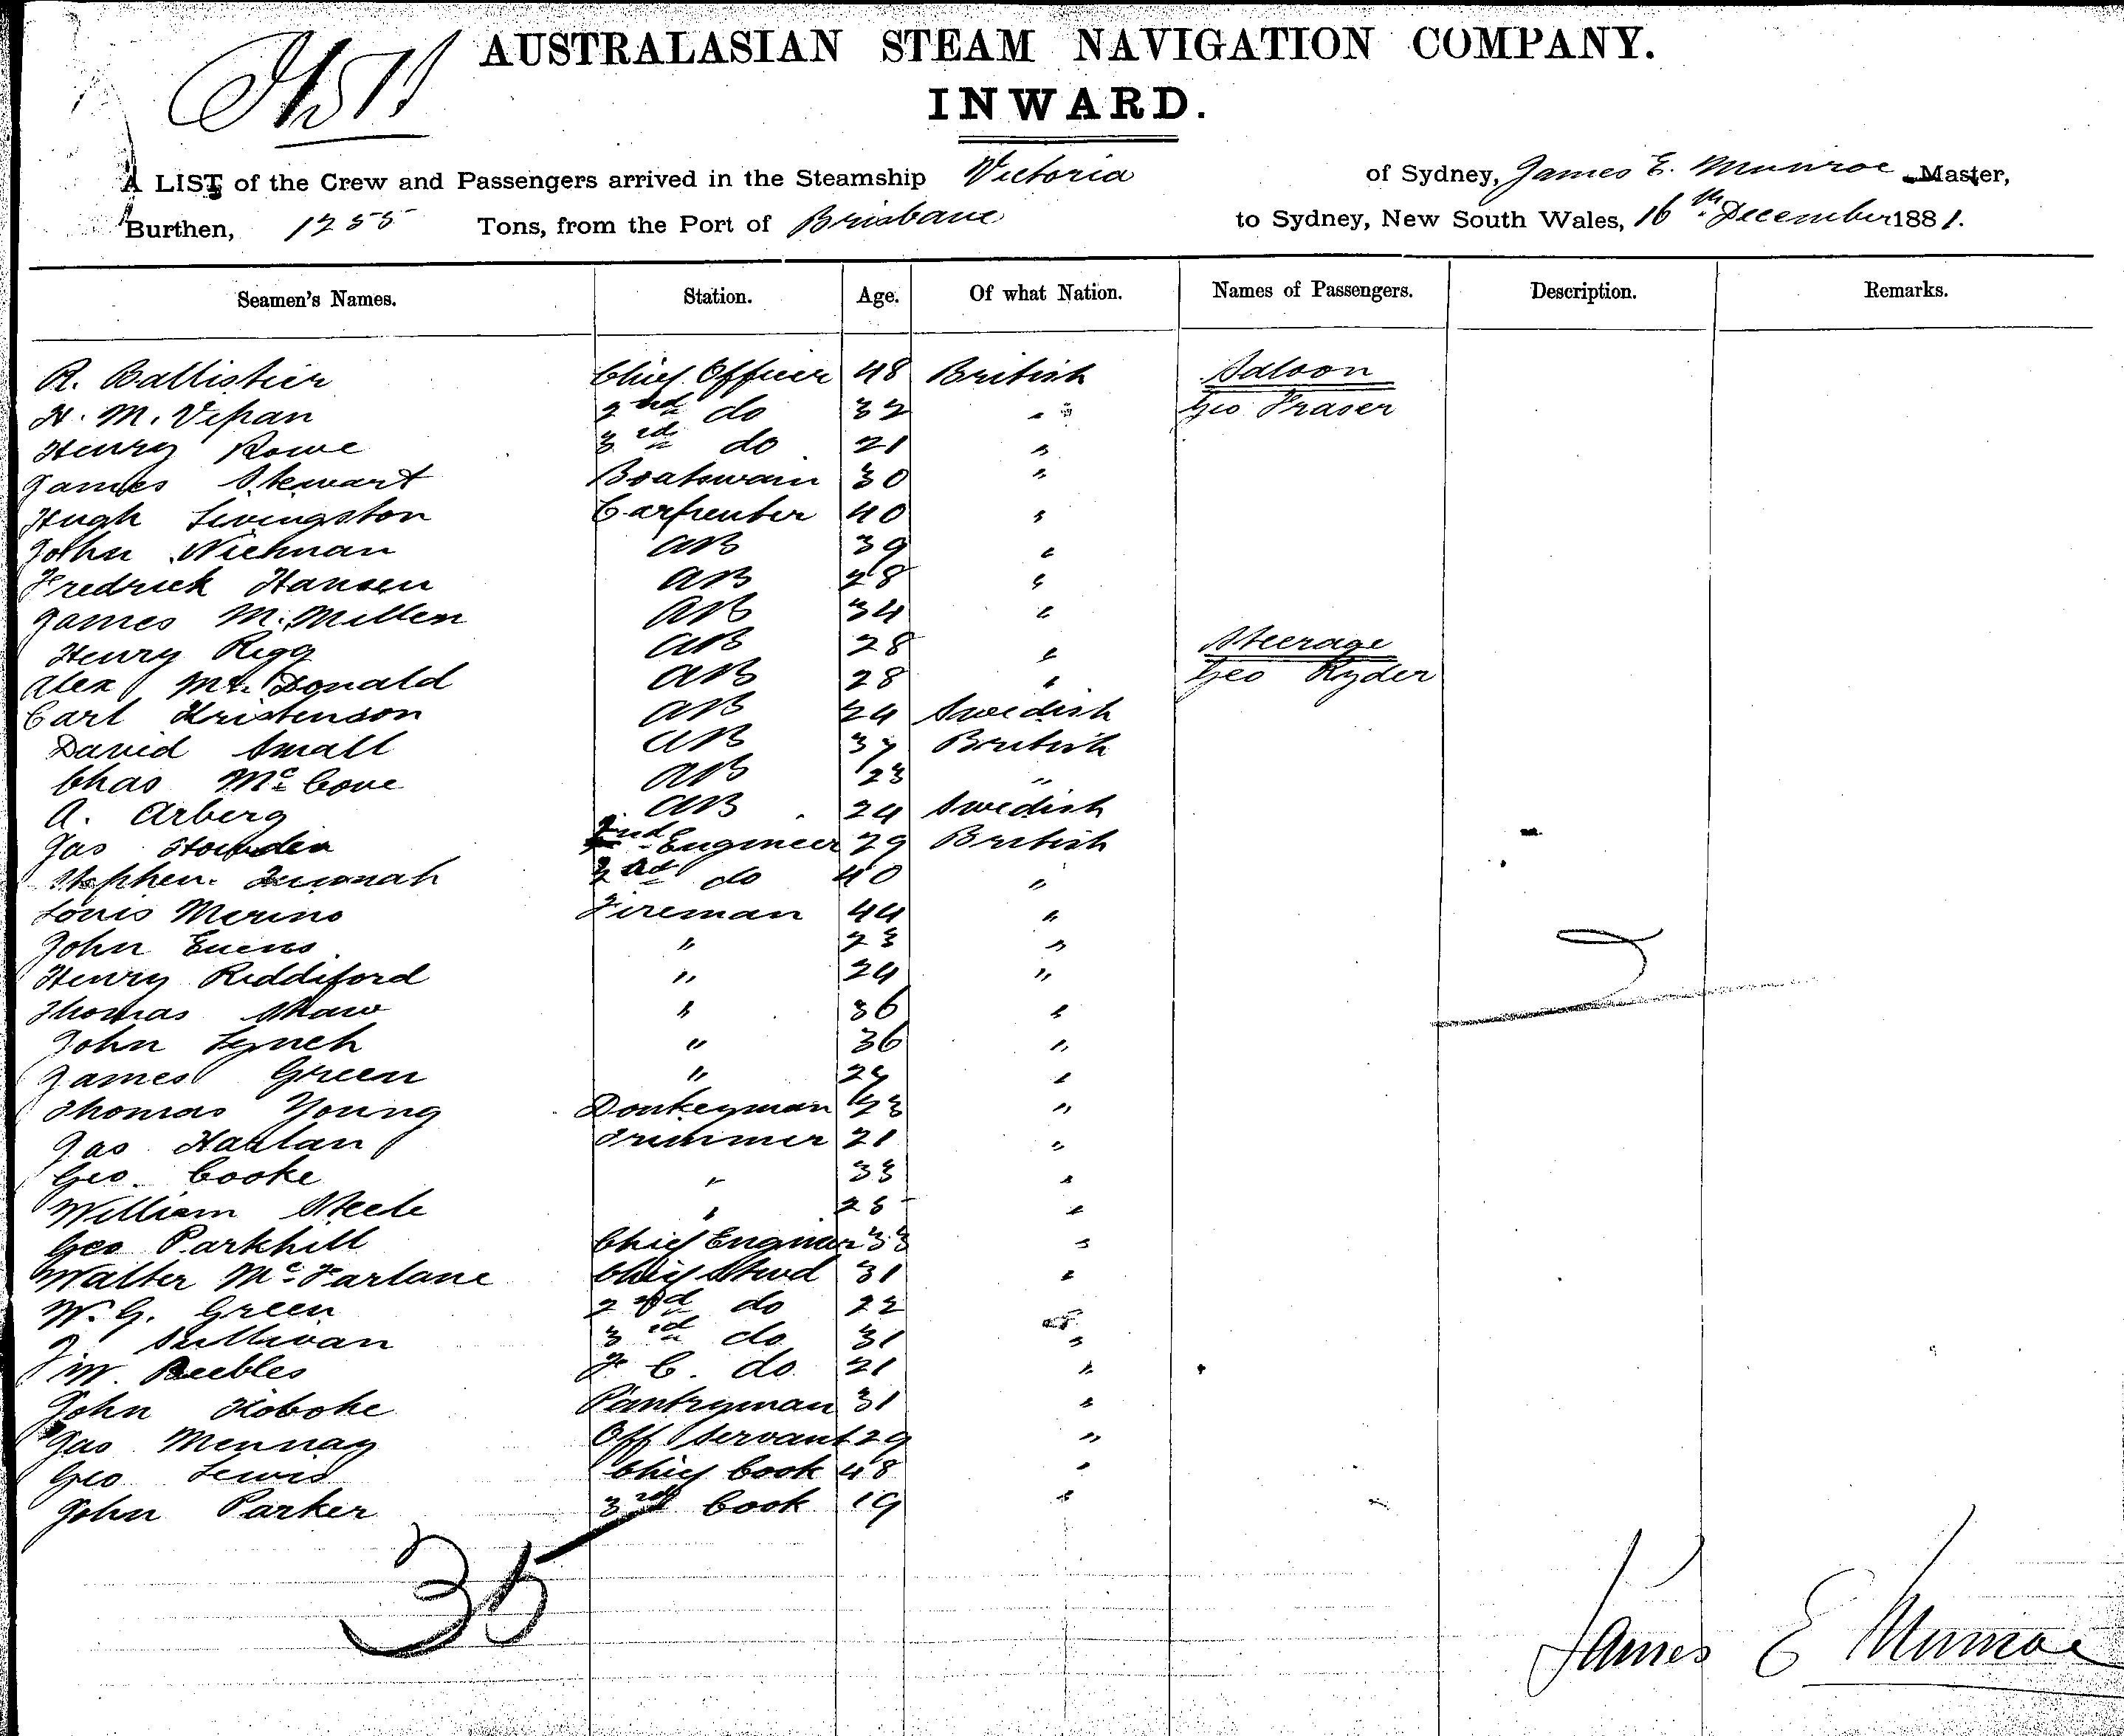 AUSTRALASIAN STEAM NAVIGATION COMPANY.
INWARD.
A LIST of the Crew and Passengers arrived in the Steamship Victoria of Sydney, James E. Munroe Master,
Burthen, 1255 Tons, from the Port of Brisbane to Sydney, New South Wales, 16th December 1881.
Seamen's Names. Station. Age. Of what Nation. Names of Passengers. Description. Remarks.
R. Ballistier Chief Officer 48 British Saloon
H. M. Vipan 2nd do 32 " Geo Fraser
Henry Rowe 3rd do 21 "
James Stewart Boatswain 30 "
Hugh Livingston Carpenter 40 "
John AB 39 "
Fredrick Hansen AB 28 "
James M. Millen AB 34 "
Henry Rigg AB 28 " Steerage
Alex Mc Donald AB 28 " Geo Ryder
Carl Kristenson AB 24 Swedish
David Small AB 37 British
Chas Mc Cove AB 23 "
A. Arberg AB 24 Swedish
Jas 2nd Engineer 29 British
Stephen 3rd do 40 "
Louis Merino Fireman 44 "
John Evens " 23 "
Henry Riddiford " 24 "
Thomas Shaw " 36 "
John Lynch " 36 "
James Green " "
Thomas Young Donkeyman 23 "
Jas Harlan Trimmer 21 "
Geo. Cooke " 33 "
William Steele " 25 "
Geo Parkhill Chief Engineer 33 "
Walter Mc Farlane Chief Stwd 31 "
W. G. Green 2nd do 22 "
J Sullivan 3rd do 31 "
W. Peebles F. C. do 21 "
John Pantryman 31 "
Jas Mennay Off Servant 29 "
Geo Lewis Chief Cook 48 "
John Parker 3rd Cook 19 "
35
James E Munroe